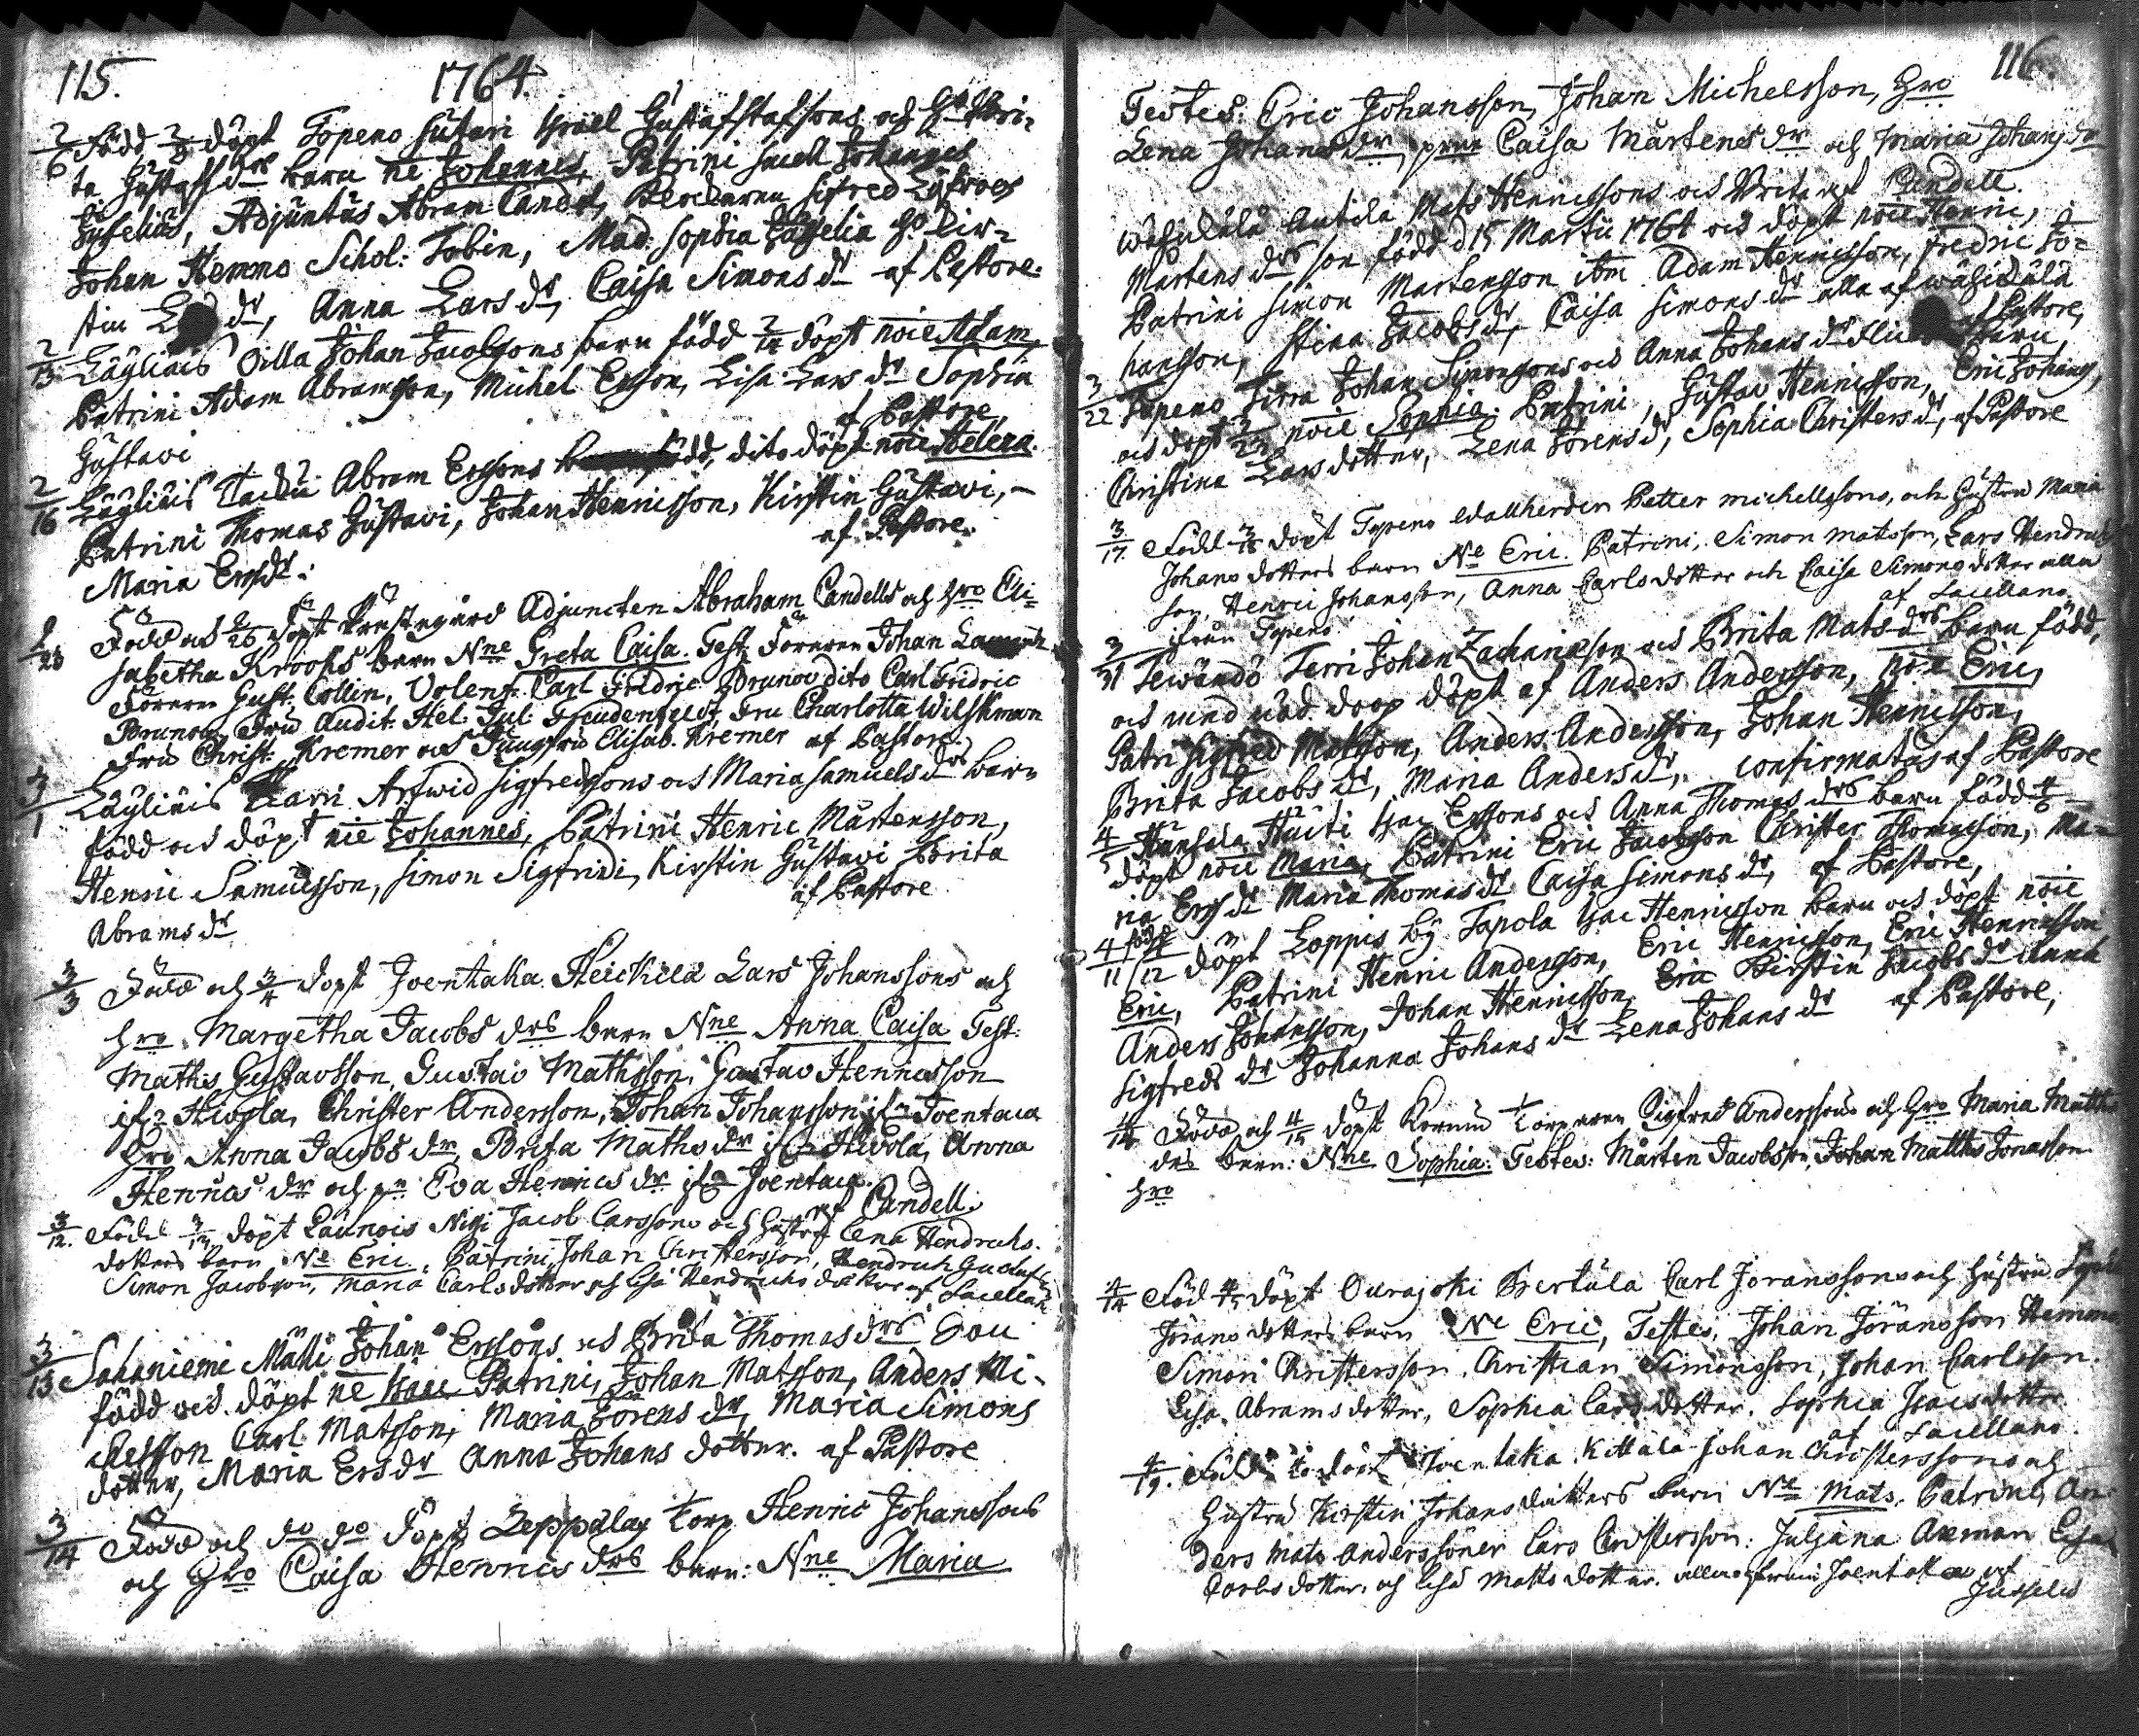 115. 1764.
2/6 Född 2/8 döpt Topeno Sutari Israel Gustafstafsons och H. Bri-
ta Gustafs drs barn ne Johannes, Patrini Johannes
Adjuntus Abram Candel, Klockaren Sifred Löfroos
Johan Hemmo Schol: Tobin, Mad. Sophia Kir-
stin dr, Anna Lars dr, Caisa Simons dr af Pastore.
2/13 Läyliäis Oilla Johan Jacobsons barn född 2/14 döpt noie Adam
Patrini Adam Abramsson, Michel Ersson, Lisa Lars dr Sophia
Gustavi af Pastore,
2/16 Läyliäis Abram Erssons född, dito döpt noie Helena.
Patrini Thomas Gustavi, Johan Henricsson, Kirstin Gustavi,
Maria Ersdr. af Pastore.
2/25 Född och 2/26 döpt Prästegård Adjuncten Abraham Candells och Hro Eli-
sabetha Krooks barn Nne Greta Caisa. Test: Föraren Johan
Föraren Gust. Collin, Volent. Carl Fridric Brunov dito Carl Fridric
Brunov, Fru Audit. Hel. Jul. Freudenfeldt, Fru Charlotta Wilskman
Fru Christ. Kremer och Jungfru Elisab. Kremer af Pastore.
3/1 Läyliäis Arfwid Sigfredssons och Maria Samuels drs barn
född och döpt nie Johannes, Patrini Henric Mårtensson,
Henric Samuelsson, Simon Sigfridi, Kirstin Gustavi Brita
Abrams dr af Pastore
3/3 Född och 3/4 döpt Joentaka Heickilä Lars Johanssons och
Hro Margetha Jacobs drs barn Nne Anna Caisa Test:
Mathis Gustavsson, Gustav Mathsson, Gustav Henricsson
ifr Hirola, Christer Andersson, Johan Johansson ifr Joentaca
Hro Anna Jacobs dr, Brita Maths dr ifr Hirola, Anna
Henrics dr och Eva Henrics dr ifr Joentaca.
af Candell.
3/12. Född döpt Launois Jacob Larssons och Hustru Lena Hendrichs.
dotters barn Ne Eric. Patrini Johan Christersson, Hendrich Gustafs
Simon Jacobsson, Maria Carlsdotter och Lisa Hendrichs dotter af Sacellan
3/13 Sahaniemi Mälli Johan Erssons och Brita Thomas drs Son
född och döpt ne Isaac Patrini, Johan Matsson, Anders Mi-
chelsson Carl Matsson, Maria Jörens dr, Maria Simons
dotter, Maria Ers dr Anna Johans dotter. af Pastore
3/14 Född och do do döpt Leppälax torp Henric Johanssons
och Hro Caisa Henrics drs barn: Nne Maria
116.
Testes: Eric Johansson, Johan Michelsson, Hro
Lena Johans dr, Caisa Mårtens dr och Maria Johans dr
Candell.
Wähikälä Anttila Mats Henricssons och Brita
Mårtens drs son född d 15 Martii 1764 och döpt noie Henric,
Patrini Simon Mårtensson ibm Adam Henricsson, Fredric Jo-
hansson, Stina Jacobs dr, Caisa Simons dr alla af Wähikälä
af Pastore,
3/22 Topeno Johan Simonssons och Anna Johans dr barn,
och döpt 3/23 noie Sophia. Patrini, Gustav Henricsson, Eric Johans,
Christina Larsdotter, Lena Jörens dr, Sophia Christers dr, af Pastore
3/17. Född 3/18 döpt Topeno Wallherden Petter Michellssons, och Hustru Maria
Johans dotters barn Ne Eric. Patrini, Simon Matsson, Lars Hendrich
son, Henric Johansson, Anna Carlsdotter och Caisa Simons dotter alla
från Topeno af Sacellano
3/31 Tewändö Terri Johan Zachariæson och Brita Mats drs barn född,
och med nöd doop döpt af Anders Andersson, noie Eric,
Patri Sigfred Matsson, Anders Andersson, Johan Henricsson,
Brita Jacobs dr, Maria Anders dr, confirmatus af Pastore
4/5 Hunsala Huiti Isac Erssons och Anna Thomas drs barn född 4/6
döpt noie Maria, Patrini Eric Jacobsson Christer Thomasson, Ma-
ria Ers dr Maria Thomas dr Caisa Simons dr, af Pastore,
4/11 född 4/12 döpt Loppis by Tapola Isac Henricsson barn och döpt noie
Eric, Patrini Henric Andersson, Eric Henricsson, Eric Henricsson
Anders Johansson, Johan Henricsson, Eric Kirstin Jacobs dr Anna
Sigfreds dr Johanna Johans dr Lena Johans dr af Pastore,
4/14 Född och 4/15 döpt Torparen Sigfred Anderssons och Hro Maria Matts
drs barn: Nne Sophia: Testes: Mårten Jacobsson, Johan Matths Jonasson
Hro
4/14 Föd 4/15 döpt Ourajoki Perttula Carl Jöranssons och Hustru
Jörans dotters barn Ne Eric, Testes, Johan Jöransson Hemmo
Simon Christersson, Christian Simonsson, Johan Carlsson.
Lisa Abrams dotter, Sophia Lars dotter, Sophia Isacs dotter
af Sacellano.
4/19. Född döpt Joentaka Kittälä Johan Christerssons och
Hustru Kirstin Johans dotters barn Ne Mats. Patrini, An-
ders Mats Anderssöner Lars Christersson: Juliana Axman Lisa
Carls dotter, och Lisa Matts dotter. alla ifrån Joentaka af